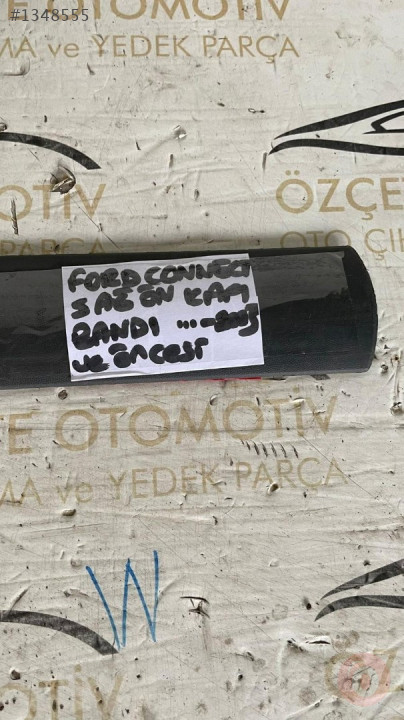 #1348555
E OTOMOTİV
MA ve YEDEK PARÇA
OTİV
ÖZÇE
OTO ÇI
FORD CONNECT
SAĞ ÖN KAPI
BANDI ...-2013
ve öncesi
E OTOMOTİV
MA ve YEDEK PARÇA
W
OTİV